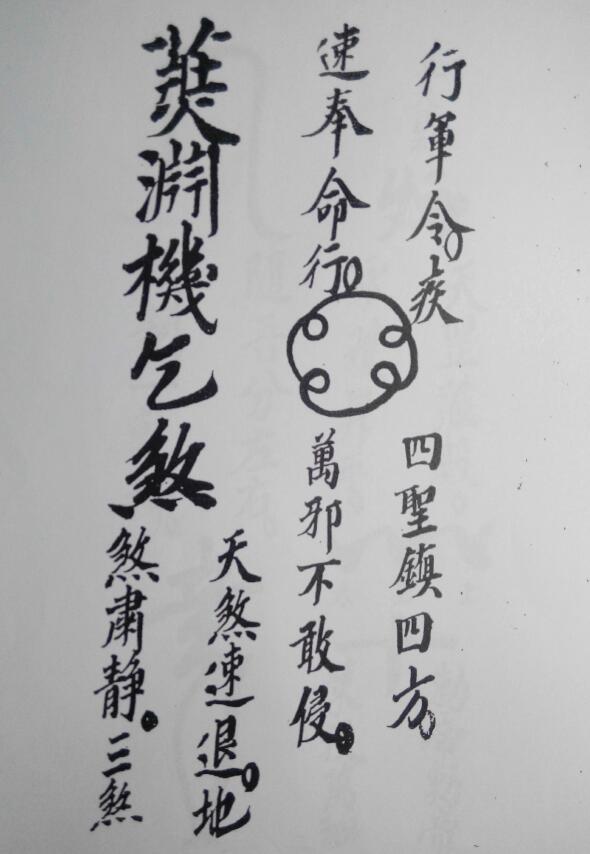 行軍令。疾
速奉命行。
四聖鎮四方。
萬邪不敢侵。
淵機乞煞
天煞速退。地
煞肅靜。三煞